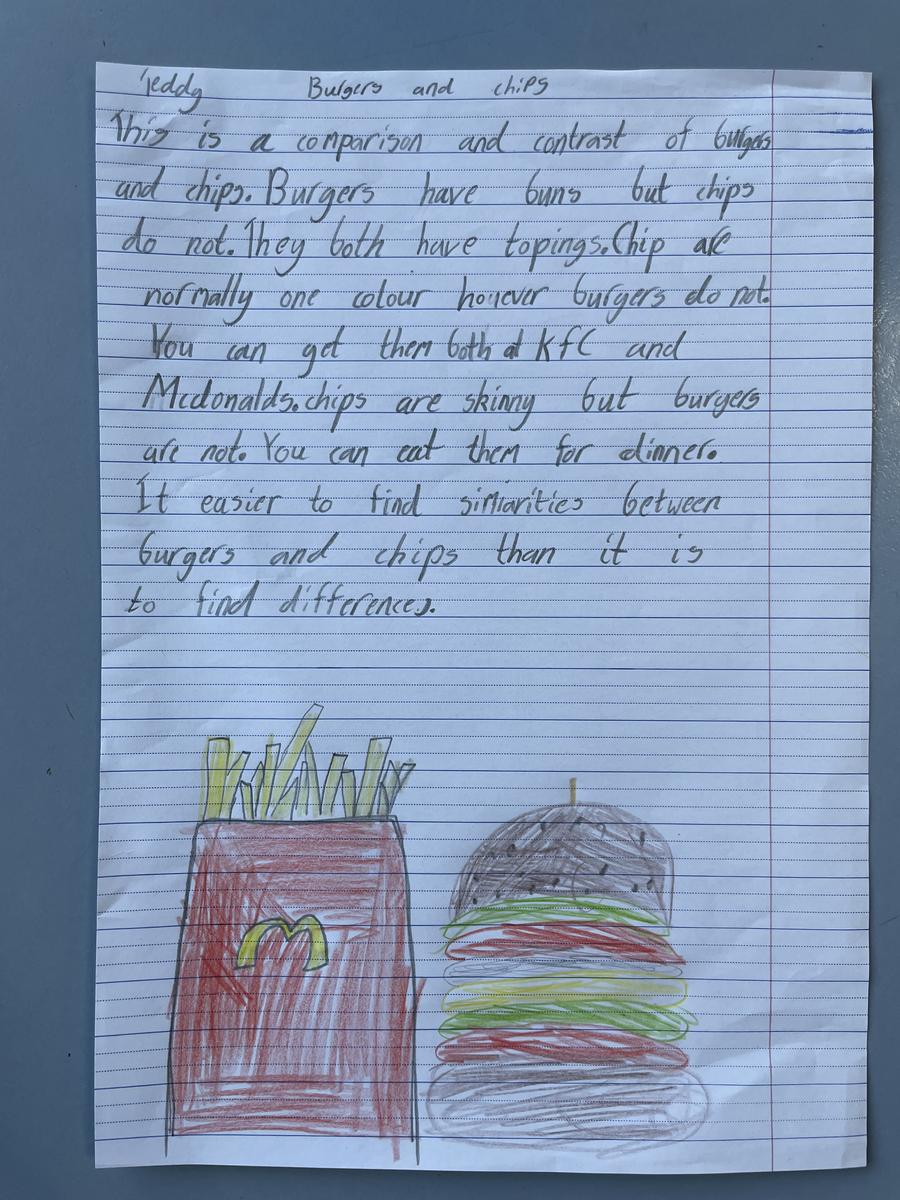 Teddy Burgers and chips
This is a comparison and contrast of burgers
and chips. Burgers have buns but chips
do not. They both have topings. Chip are
normally one colour however burgers do not.
You can get them both at KFC and
Mcdonalds. chips are skinny but burgers
are not. You can eat them for dinner.
It easier to find simiarities between
burgers and chips than it is
to find differences.
M